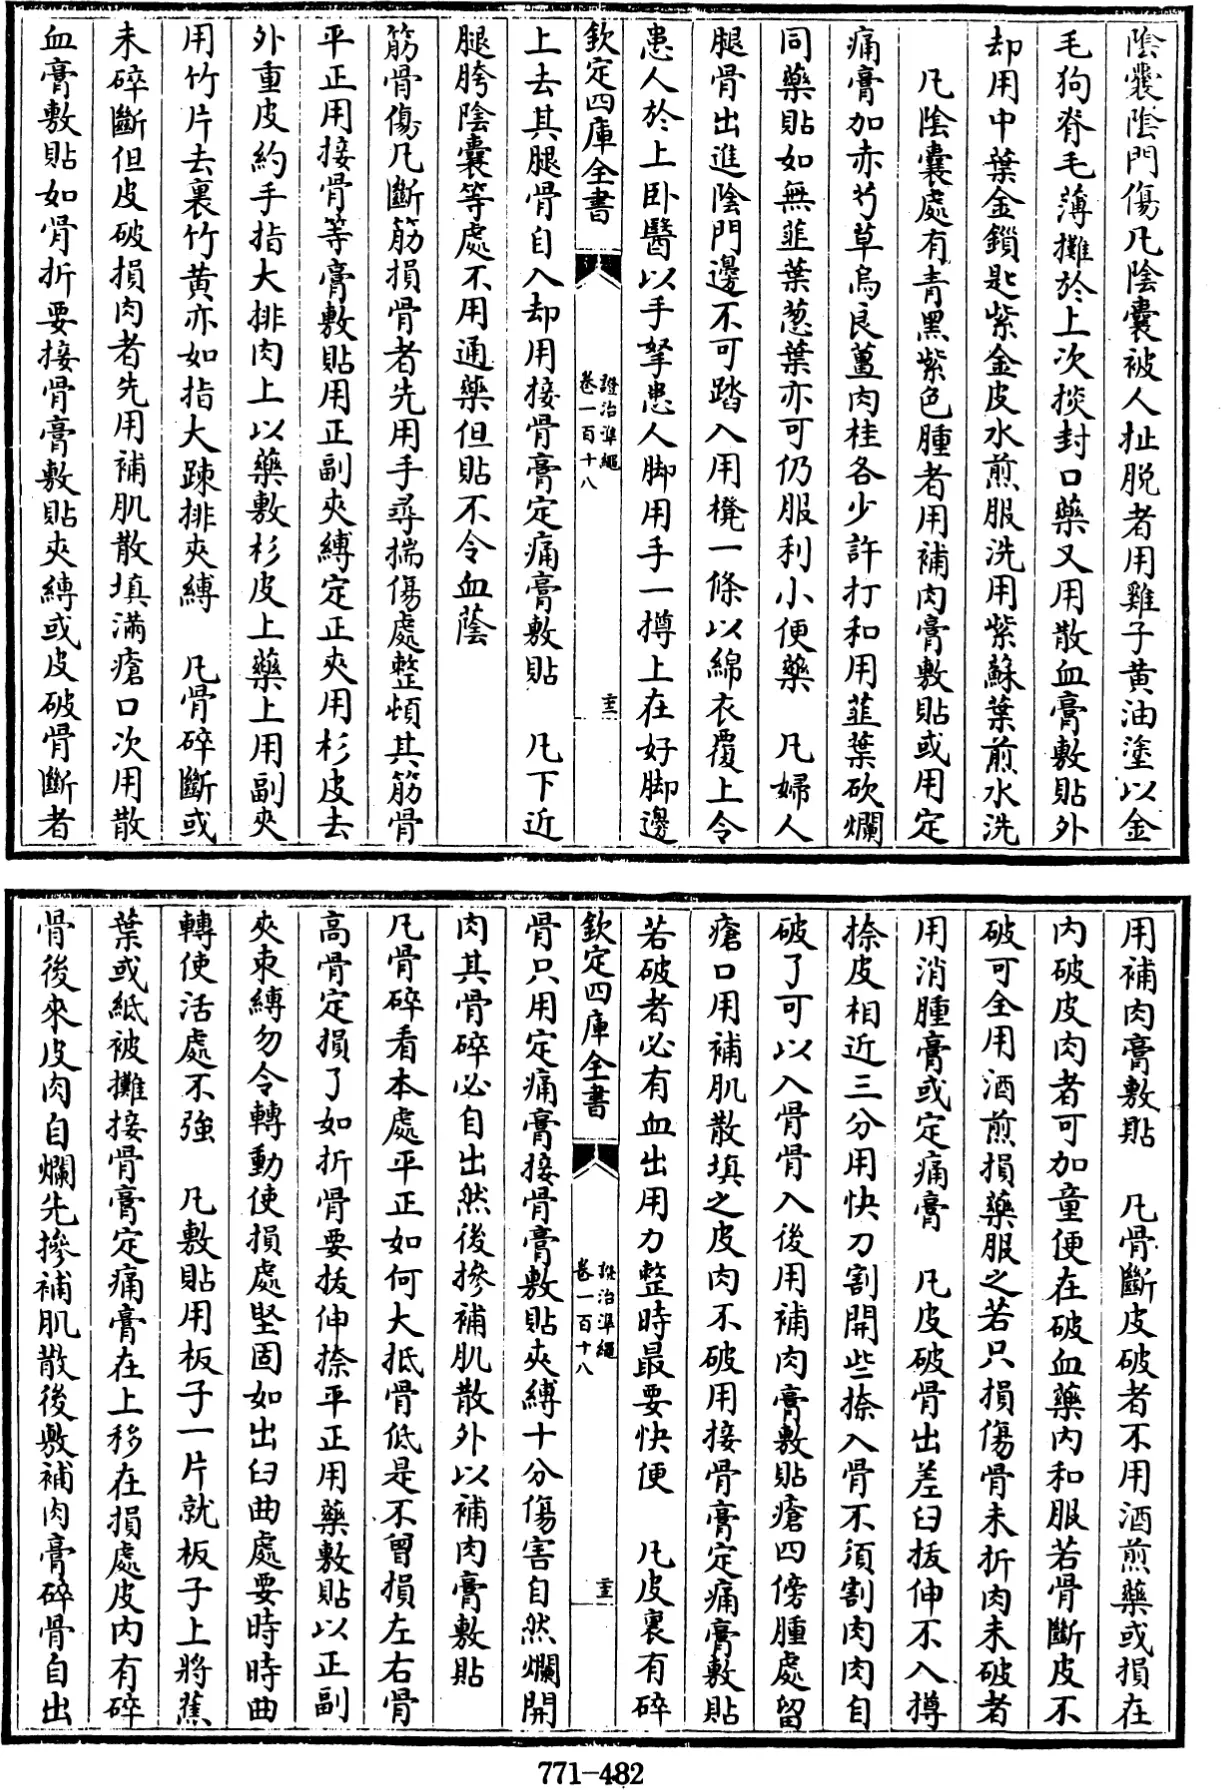 陰囊陰門傷凡陰囊被人扯脱者用雞子黄油塗以金
毛狗脊毛薄攤於上次掞封口藥又用散血膏敷貼外
却用中葉金鎖匙紫金皮水煎服洗用紫蘇葉煎水洗
凡陰囊處有青黑紫色腫者用補肉膏敷貼或用定
痛膏加赤芍草烏良薑肉桂各少許打和用韮葉砍爛
同藥貼如無韮葉葱葉亦可仍服利小便藥　凡婦人
腿骨出進陰門邊不可踏入用櫈一條以綿衣覆上令
患人於上卧醫以手拏患人脚用手一撙上在好脚邊
欽定四庫全書
證治準繩
卷一百十八
上去其腿骨自入却用接骨膏定痛膏敷貼　凡下近
腿胯陰囊等處不用通藥但貼不令血蔭
筋骨傷凡斷筋損骨者先用手尋揣傷處整頓其筋骨
平正用接骨等膏敷貼用正副夾縛定正夾用杉皮去
外重皮約手指大排肉上以藥敷杉皮上藥上用副夾
用竹片去裏竹黄亦如指大踈排夾縛　凡骨碎斷或
未碎斷但皮破損肉者先用補肌散填滿瘡口次用散
血膏敷貼如骨折要接骨膏敷貼夾縛或皮破骨斷者
用補肉膏敷貼　凡骨斷皮破者不用酒煎藥或損在
内破皮肉者可加童便在破血藥内和服若骨斷皮不
破可全用酒煎損藥服之若只損傷骨未折肉未破者
用消腫膏或定痛膏　凡皮破骨出差臼拔伸不入撙
捺皮相近三分用快刀割開些捺入骨不須割肉肉自
破了可以入骨骨入後用補肉膏敷貼瘡四傍腫處留
瘡口用補肌散填之皮肉不破用接骨膏定痛膏敷貼
若破者必有血出用力整時最要快便　凡皮裏有碎
欽定四庫全書
證治準繩
卷一百十八
骨只用定痛膏接骨膏敷貼夾縛十分傷害自然爛開
肉其骨碎必自出然後摻補肌散外以補肉膏敷貼
凡骨碎看本處平正如何大抵骨低是不曾損左右骨
高骨定損了如折骨要拔伸捺平正用藥敷貼以正副
夾束縛勿令轉動使損處堅固如出臼曲處要時時曲
轉使活處不強　凡敷貼用板子一片就板子上將蕉
葉或紙被攤接骨膏定痛膏在上移在損處皮内有碎
骨後來皮肉自爛先摻補肌散後敷補肉膏碎骨自出
771-482